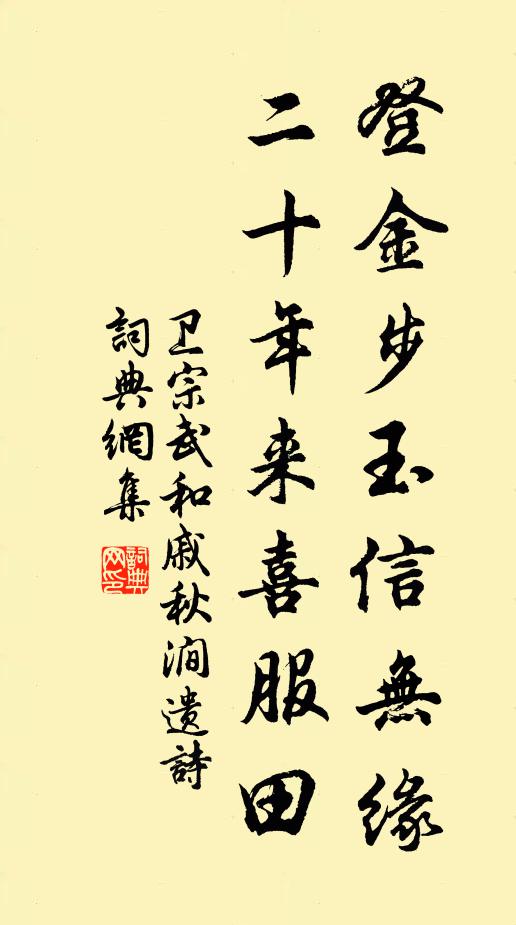 登金步玉信無緣
二十年来喜服田
卫宗武和戚秋涧遗詩
詞典網集
詞典網印